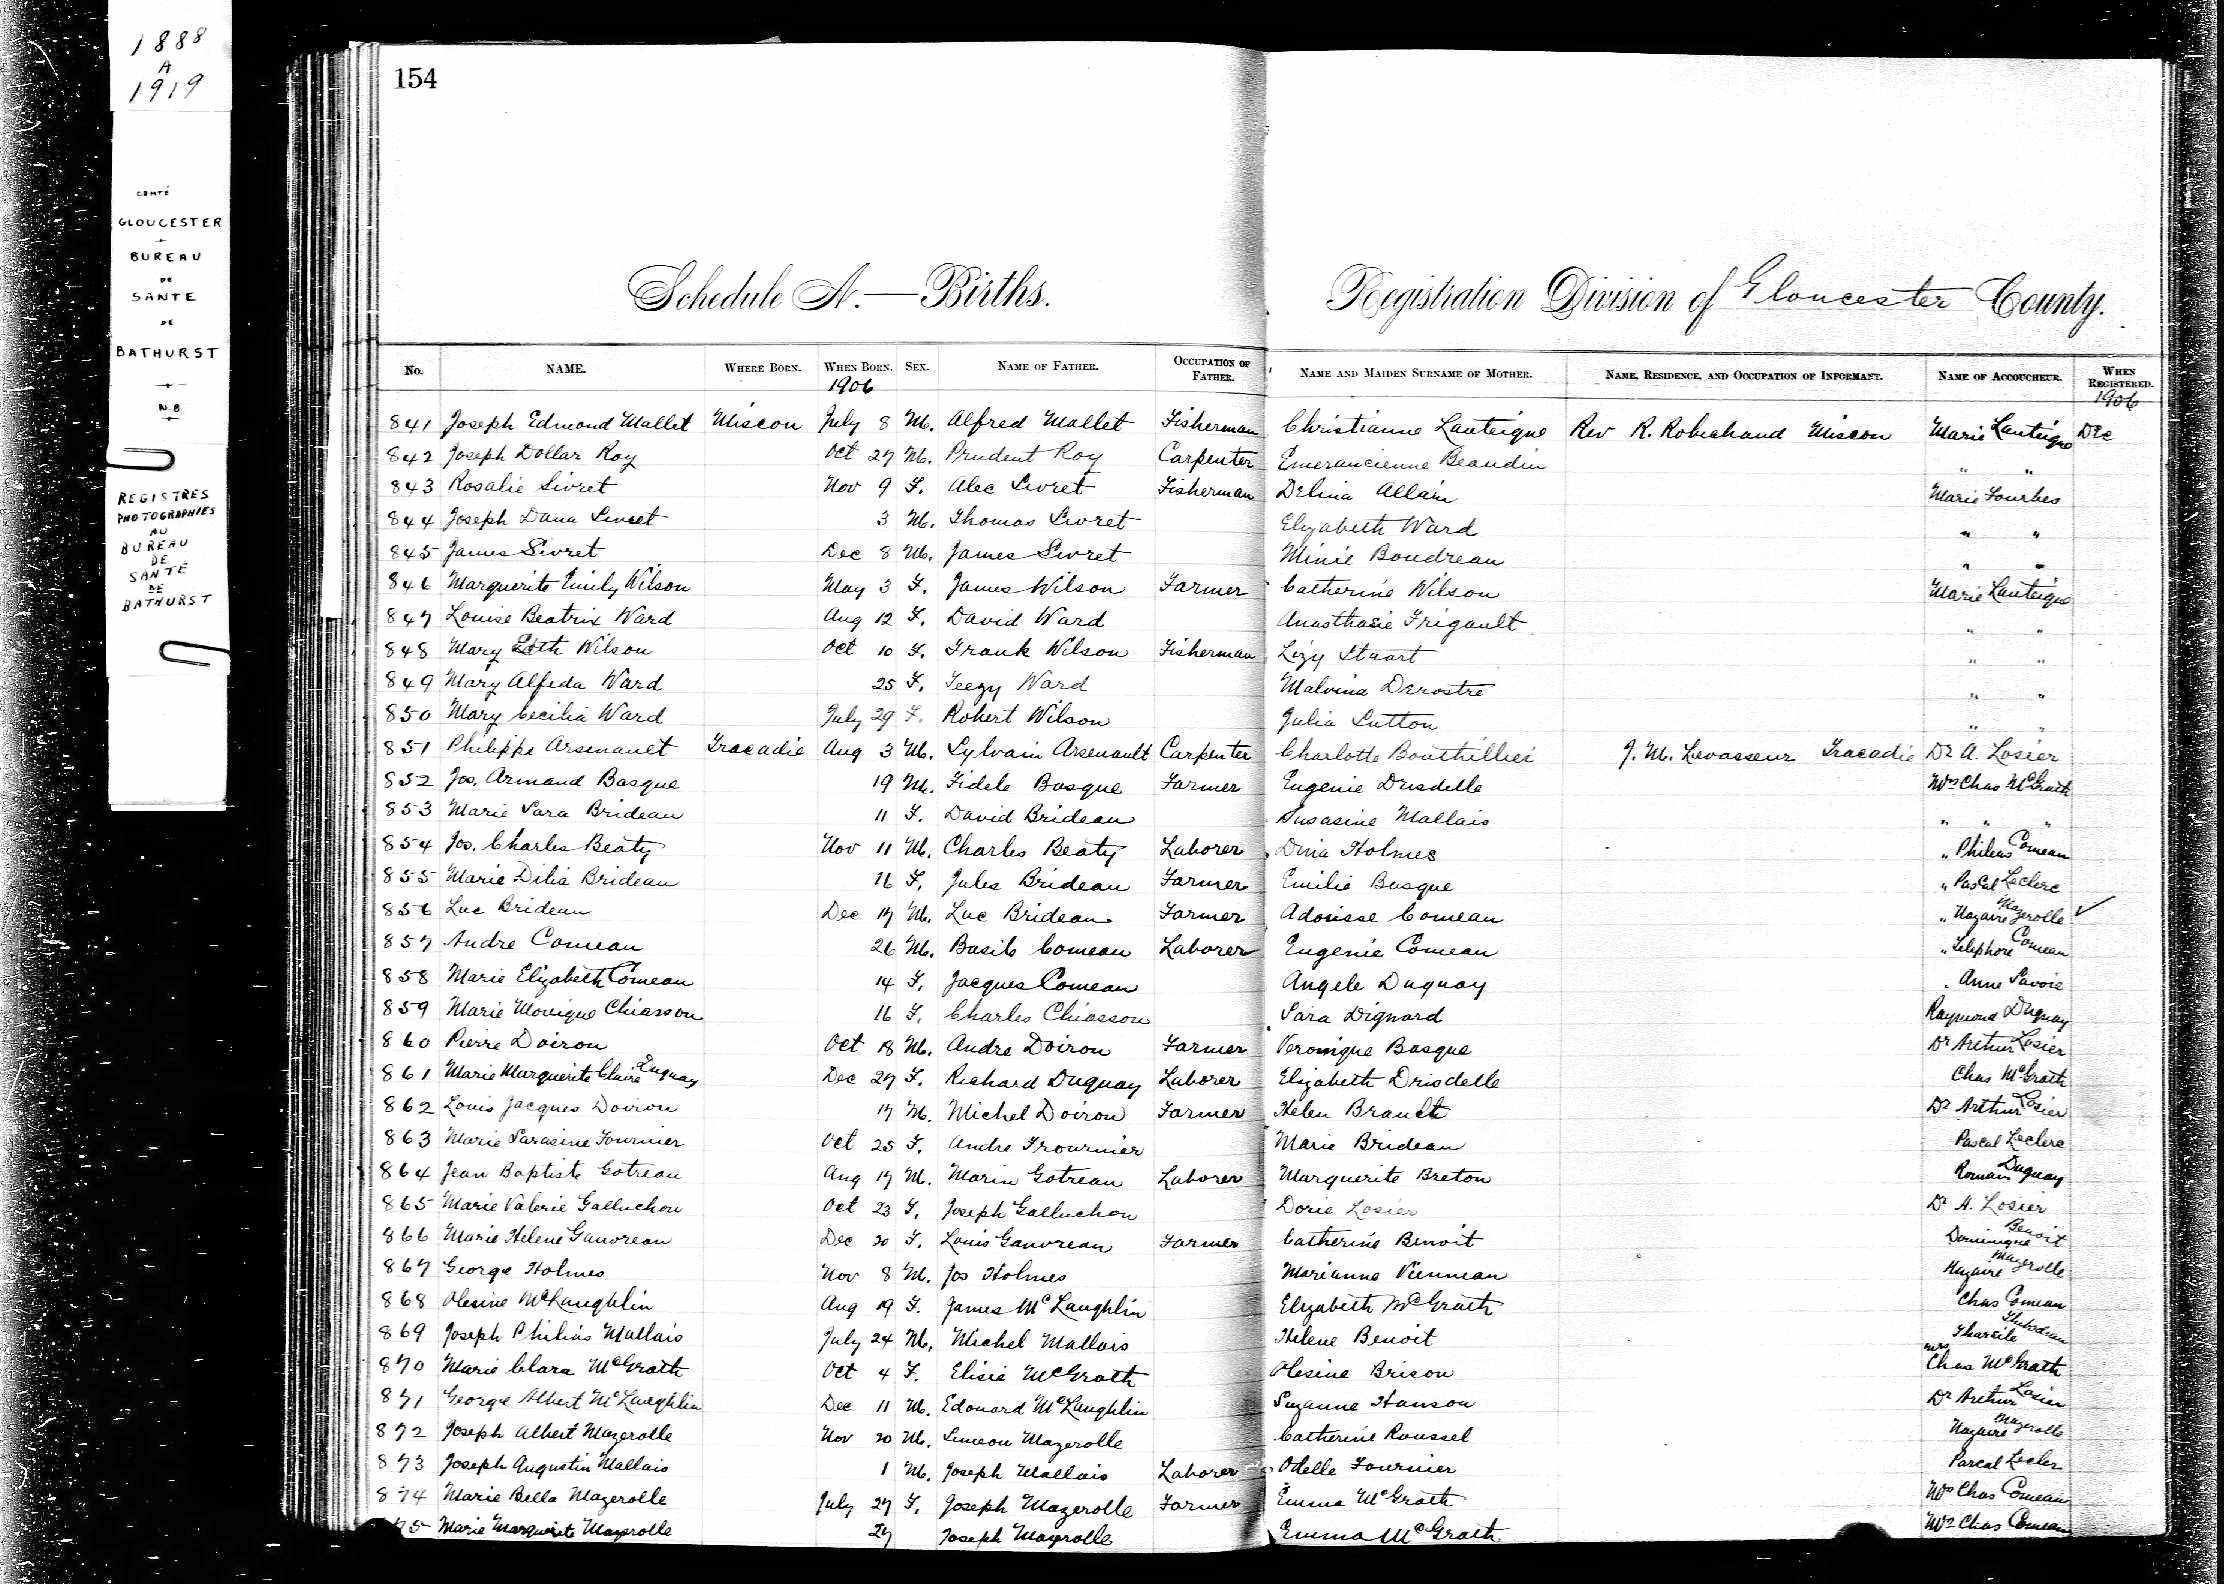 1888
A
1919
COMTÉ
GLOUCESTER
BUREAU
DE
SANTE
DE
BATHURST
N.B
REGISTRES
PHOTOGRAPHIES
AU
BUREAU
DE
SANTÉ
DE
BATHURST
154
Schedule A.—Births. Registration Division of Gloucester County.
No. NAME. WHERE BORN. WHEN BORN. SEX. NAME OF FATHER. OCCUPATION OF FATHER. NAME AND MAIDEN SURNAME OF MOTHER. NAME, RESIDENCE, AND OCCUPATION OF INFORMANT. NAME OF ACCOUCHEUR. WHEN REGISTERED.
1906 1906
841 Joseph Edmond Mallet Miscou July 8 M. Alfred Mallet Fisherman Christianne Lanteigne Rev R. Robichaud Miscou Marie Lanteigne Dec
842 Joseph Dollar Roy Oct 27 M. Prudent Roy Carpenter Emerancienne Beaudin " "
843 Rosalie Sivret Nov 9 F. Alec Sivret Fisherman Delina Allain Marie Fourbes
844 Joseph Dana Sivret 3 M. Thomas Sivret Elizabeth Ward " "
845 James Sivret Dec 8 M. James Sivret Minie Boudreau " "
846 Marguerite Emily Wilson May 3 F. James Wilson Farmer Catherine Wilson Marie Lanteigne
847 Louise Beatrix Ward Aug 12 F. David Ward Anasthasie Frigault " "
848 Mary Wilson Oct 10 F. Frank Wilson Fisherman Lizy Stuart " "
849 Mary Alfeda Ward 25 F. Ward Malvina Derostre " "
850 Mary Cecilia Ward July 29 F. Robert Wilson Julia Sutton " "
851 Philippe Arsenault Tracadie Aug 3 M. Sylvain Arsenault Carpenter Charlotte Bouthillier J. M. Levasseur Tracadie Dr A. Losier
852 Jos. Armand Basque 19 M. Fidele Basque Farmer Eugenie Drisdelle Mrs Chas McGrath
853 Marie Sara Brideau 11 F. David Brideau Susasine Mallais " " "
854 Jos. Charles Beaty Nov 11 M. Charles Beaty Laborer Dina Holmes " Phileas Comeau
855 Marie Dilia Brideau 16 F. Jules Brideau Farmer Emilie Basque " Pascal Leclerc
856 Luc Brideau Dec 17 M. Luc Brideau Farmer Adorisse Comeau " Nazaire Mazerolle
857 Andre Comeau 26 M. Basile Comeau Laborer Eugenie Comeau " Telephore Comeau
858 Marie Elizabeth Comeau 14 F. Jacques Comeau Angele Duguay " Anne Savoie
859 Marie Monique Chiasson 16 F. Charles Chiasson Sara Dignard Raymond Duguay
860 Pierre Doiron Oct 18 M. Andre Doiron Farmer Veronique Basque Dr Arthur Losier
861 Marie Marguerite Claire Duguay Dec 27 F. Richard Duguay Laborer Elizabeth Drisdelle Chas McGrath
862 Louis Jacques Doiron 17 M. Michel Doiron Farmer Helen Brault Dr Arthur Losier
863 Marie Sarasine Fournier Oct 25 F. Andre Frournier Marie Brideau Pascal Leclerc
864 Jean Baptiste Gotreau Aug 17 M. Marin Gotreau Laborer Marguerite Breton Romain Duguay
865 Marie Valerie Galluchon Oct 23 F. Joseph Galluchon Dorie Losier Dr A. Losier
866 Marie Helene Gauvreau Dec 20 F. Louis Gauvreau Farmer Catherine Benoit Dominique Benoit
867 George Holmes Nov 8 M. Jos Holmes Marianne Vienneau Nazaire Mazerolle
868 Olesine McLaughlin Aug 19 F. James McLaughlin Elizabeth McGrath Chas Comeau
869 Joseph Philias Mallais July 24 M. Michel Mallais Helene Benoit Tharsile Thibodeau
870 Marie Clara McGrath Oct 4 F. Elisie McGrath Olesine Brison Mrs Chas McGrath
871 George Albert McLaughlin Dec 11 M. Edouard McLaughlin Suzanne Hanson Dr Arthur Losier
872 Joseph Albert Mazerolle Nov 20 M. Simeon Mazerolle Catherine Roussel Nazaire Mazerolle
873 Joseph Augustin Mallais 1 M. Joseph Mallais Laborer Odelle Fournier Pascal Lecler
874 Marie Bella Mazerolle July 27 F. Joseph Mazerolle Farmer Emma McGrath Mrs Chas Comeau
75 Marie Marguerite Mazerolle 27 Joseph Mazerolle Emma McGrath Mrs Chas Comeau